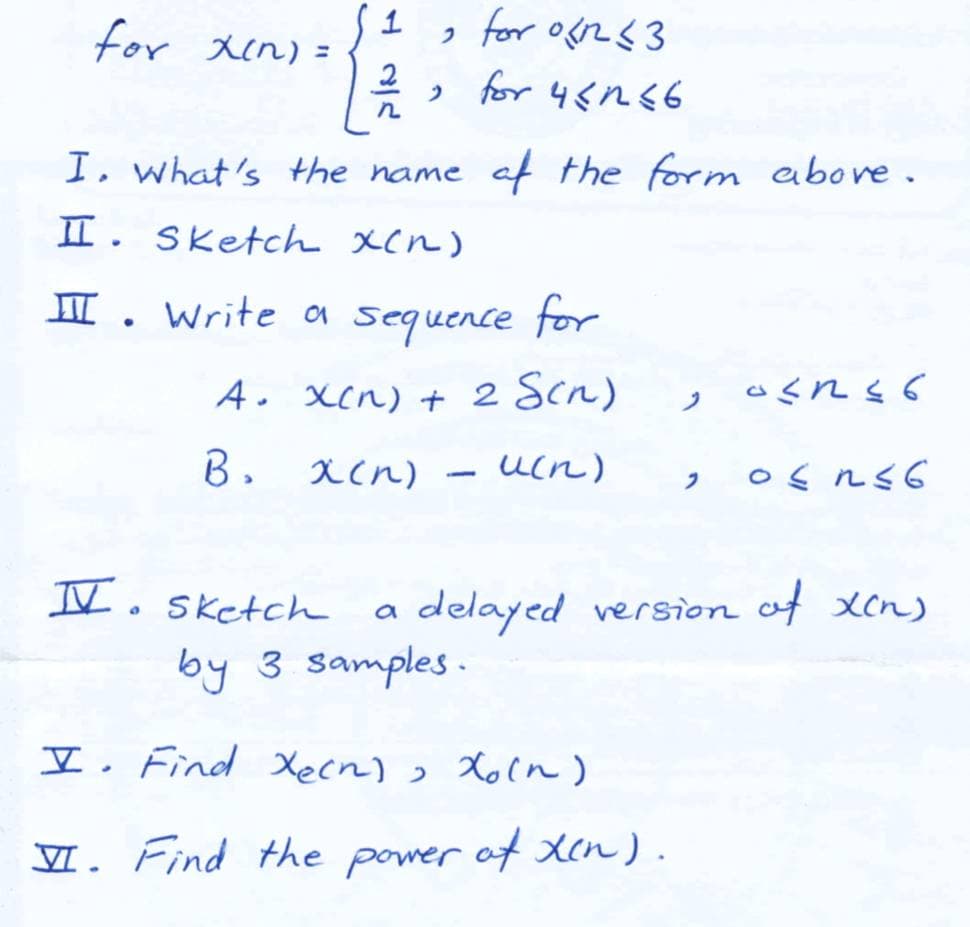 for x(n) = { 1 , for 0≤n≤3
2/n , for 4≤n≤6
I. What's the name of the form above.
II. Sketch x(n)
III. Write a sequence for
A. x(n) + 2 δ(n) , 0≤n≤6
B. x(n) − u(n) , 0≤n≤6
IV. Sketch a delayed version of x(n)
by 3 samples.
V. Find xe(n) , xo(n)
VI. Find the power of x(n).